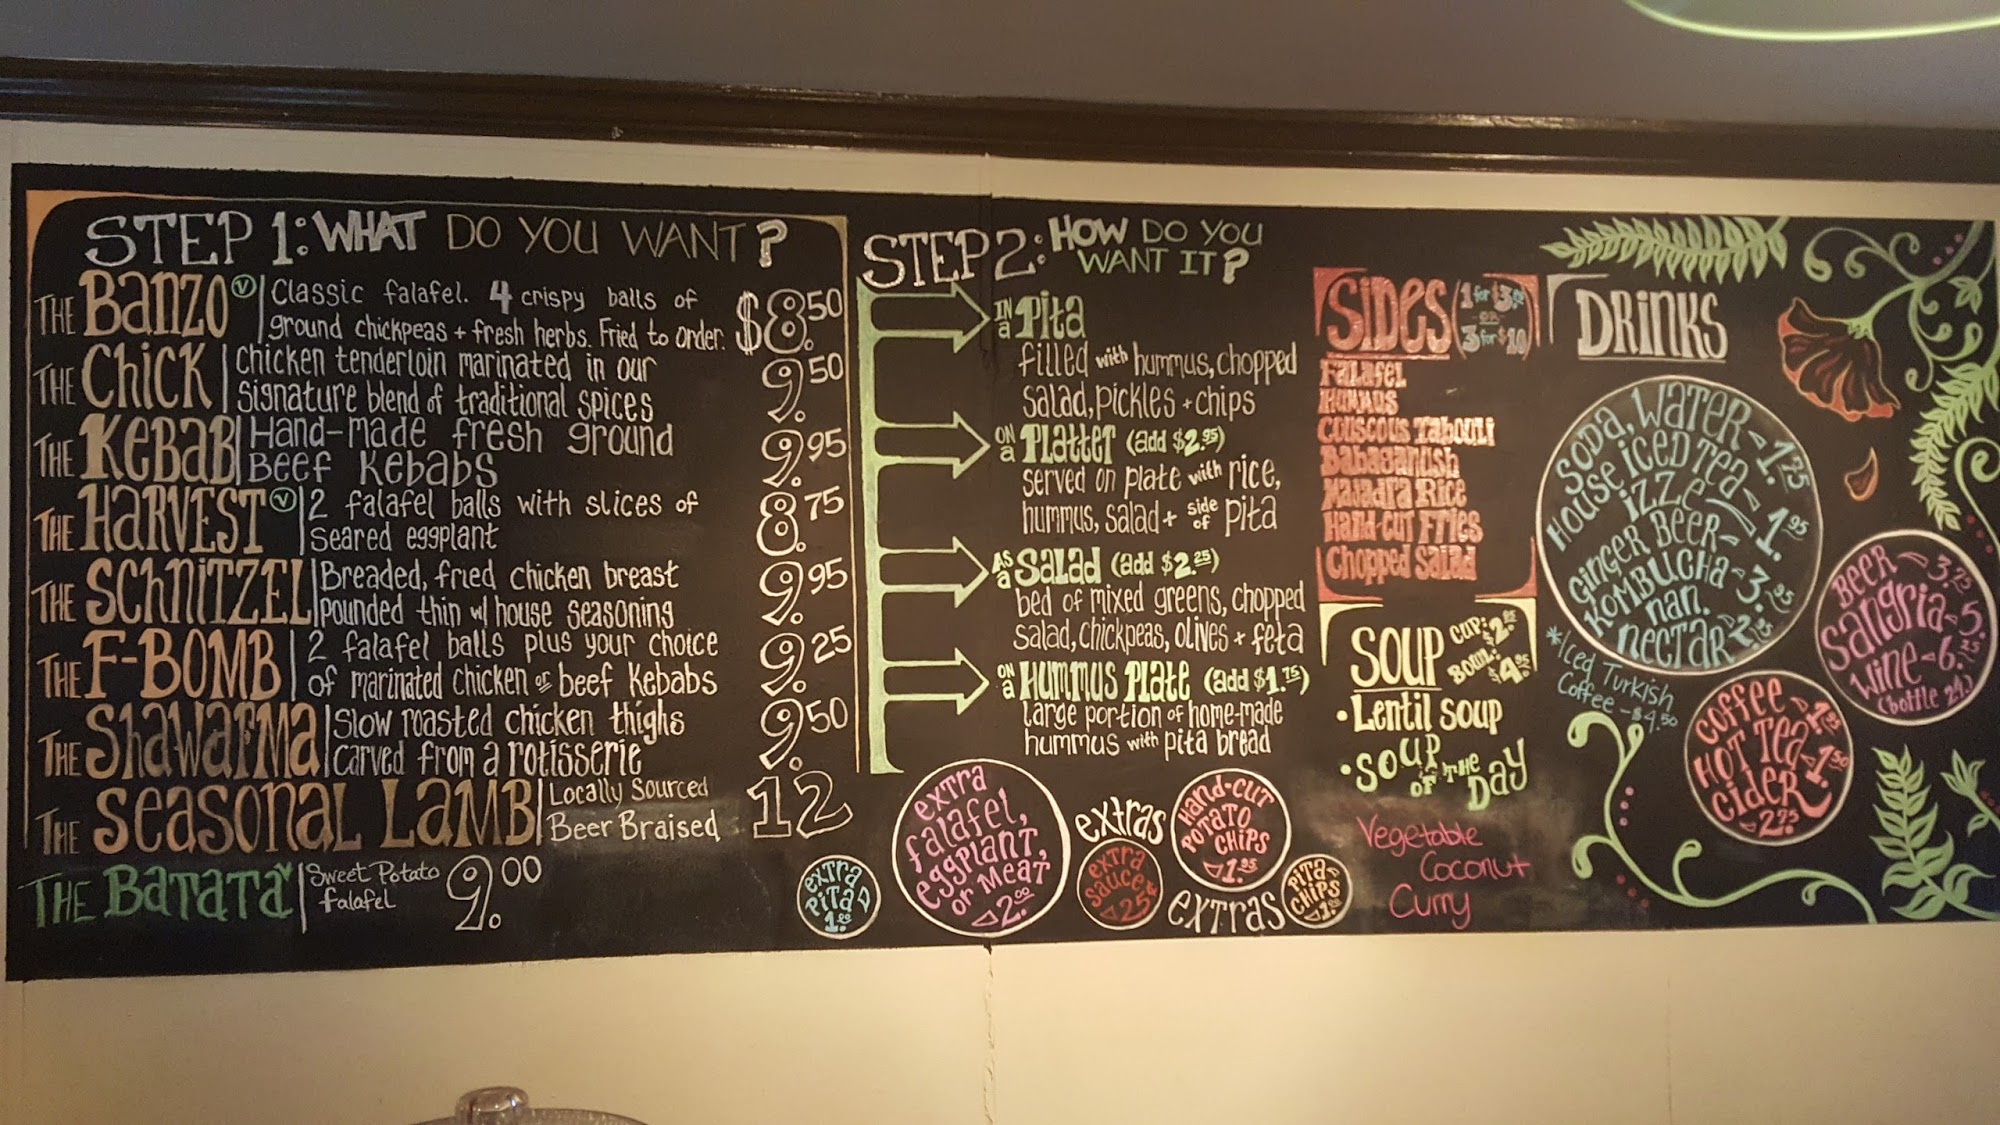 STEP 1: WHAT DO YOU WANT?
THE BANZO V Classic falafel. 4 crispy balls of
ground chickpeas + fresh herbs. Fried to order. $8.50
THE CHICK Chicken tenderloin marinated in our
signature blend of traditional spices 9.50
THE KEBAB Hand-made fresh ground
Beef Kebabs 9.95
THE HARVEST V 2 falafel balls with slices of
seared eggplant 8.75
THE SCHNITZEL Breaded, fried chicken breast
pounded thin w/ house seasoning 9.95
THE F-BOMB 2 falafel balls plus your choice
of marinated chicken or beef kebabs 9.25
THE SHAWARMA Slow roasted chicken thighs
carved from a rotisserie 9.50
THE SEASONAL LAMB Locally Sourced
Beer Braised 12
THE BATATA V Sweet Potato
falafel 9.00
STEP 2: HOW DO YOU
WANT IT?
IN a Pita
filled with hummus, chopped
salad, pickles + chips
ON a PLATTER (add $2.95)
served on plate with rice,
hummus, salad + side of pita
AS a SALAD (add $2.25)
bed of mixed greens, chopped
salad, chickpeas, olives + feta
ON a HUMMUS PLATE (add $1.75)
large portion of home-made
hummus with pita bread
extra
PITA
1.00
extra
falafel,
eggplant,
or MEAT
2.00
extras
extra
sauce
.25¢
HAND-CUT
POTATO
CHIPS
1.95
extras
PITA
CHIPS
1.00
SIDES (1 for $3.50
OR
3 for $10)
FALAFEL
HUMMUS
COUSCOUS TABOULI
BABAGANUSH
MAJADRA RICE
HAND-CUT FRIES
CHOPPED SALAD
SOUP CUP: $2.95
BOWL: $4.95
• Lentil soup
• SOUP OF THE DAY
Vegetable
Coconut
Curry
DRINKS
SODA, WATER - 1.75
HOUSE ICED TEA -
IZZE - 1.95
GINGER BEER -
KOMBUCHA - 3.95
nan.
NECTAR - 2.95
*Iced Turkish
Coffee - $4.50
BEER - 3.75
SANGRIA - 5.
WINE - 6.75
(bottle 24.)
COFFEE - 1.95
HOT TEA - 1.50
CIDER 2.75